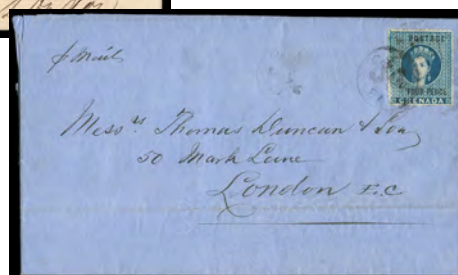 London
POSTAGE
p Mail
FOUR PENCE
GRENADA
Mess.rs Thomas Duncan & Son
50 Mark Lane
London E.C